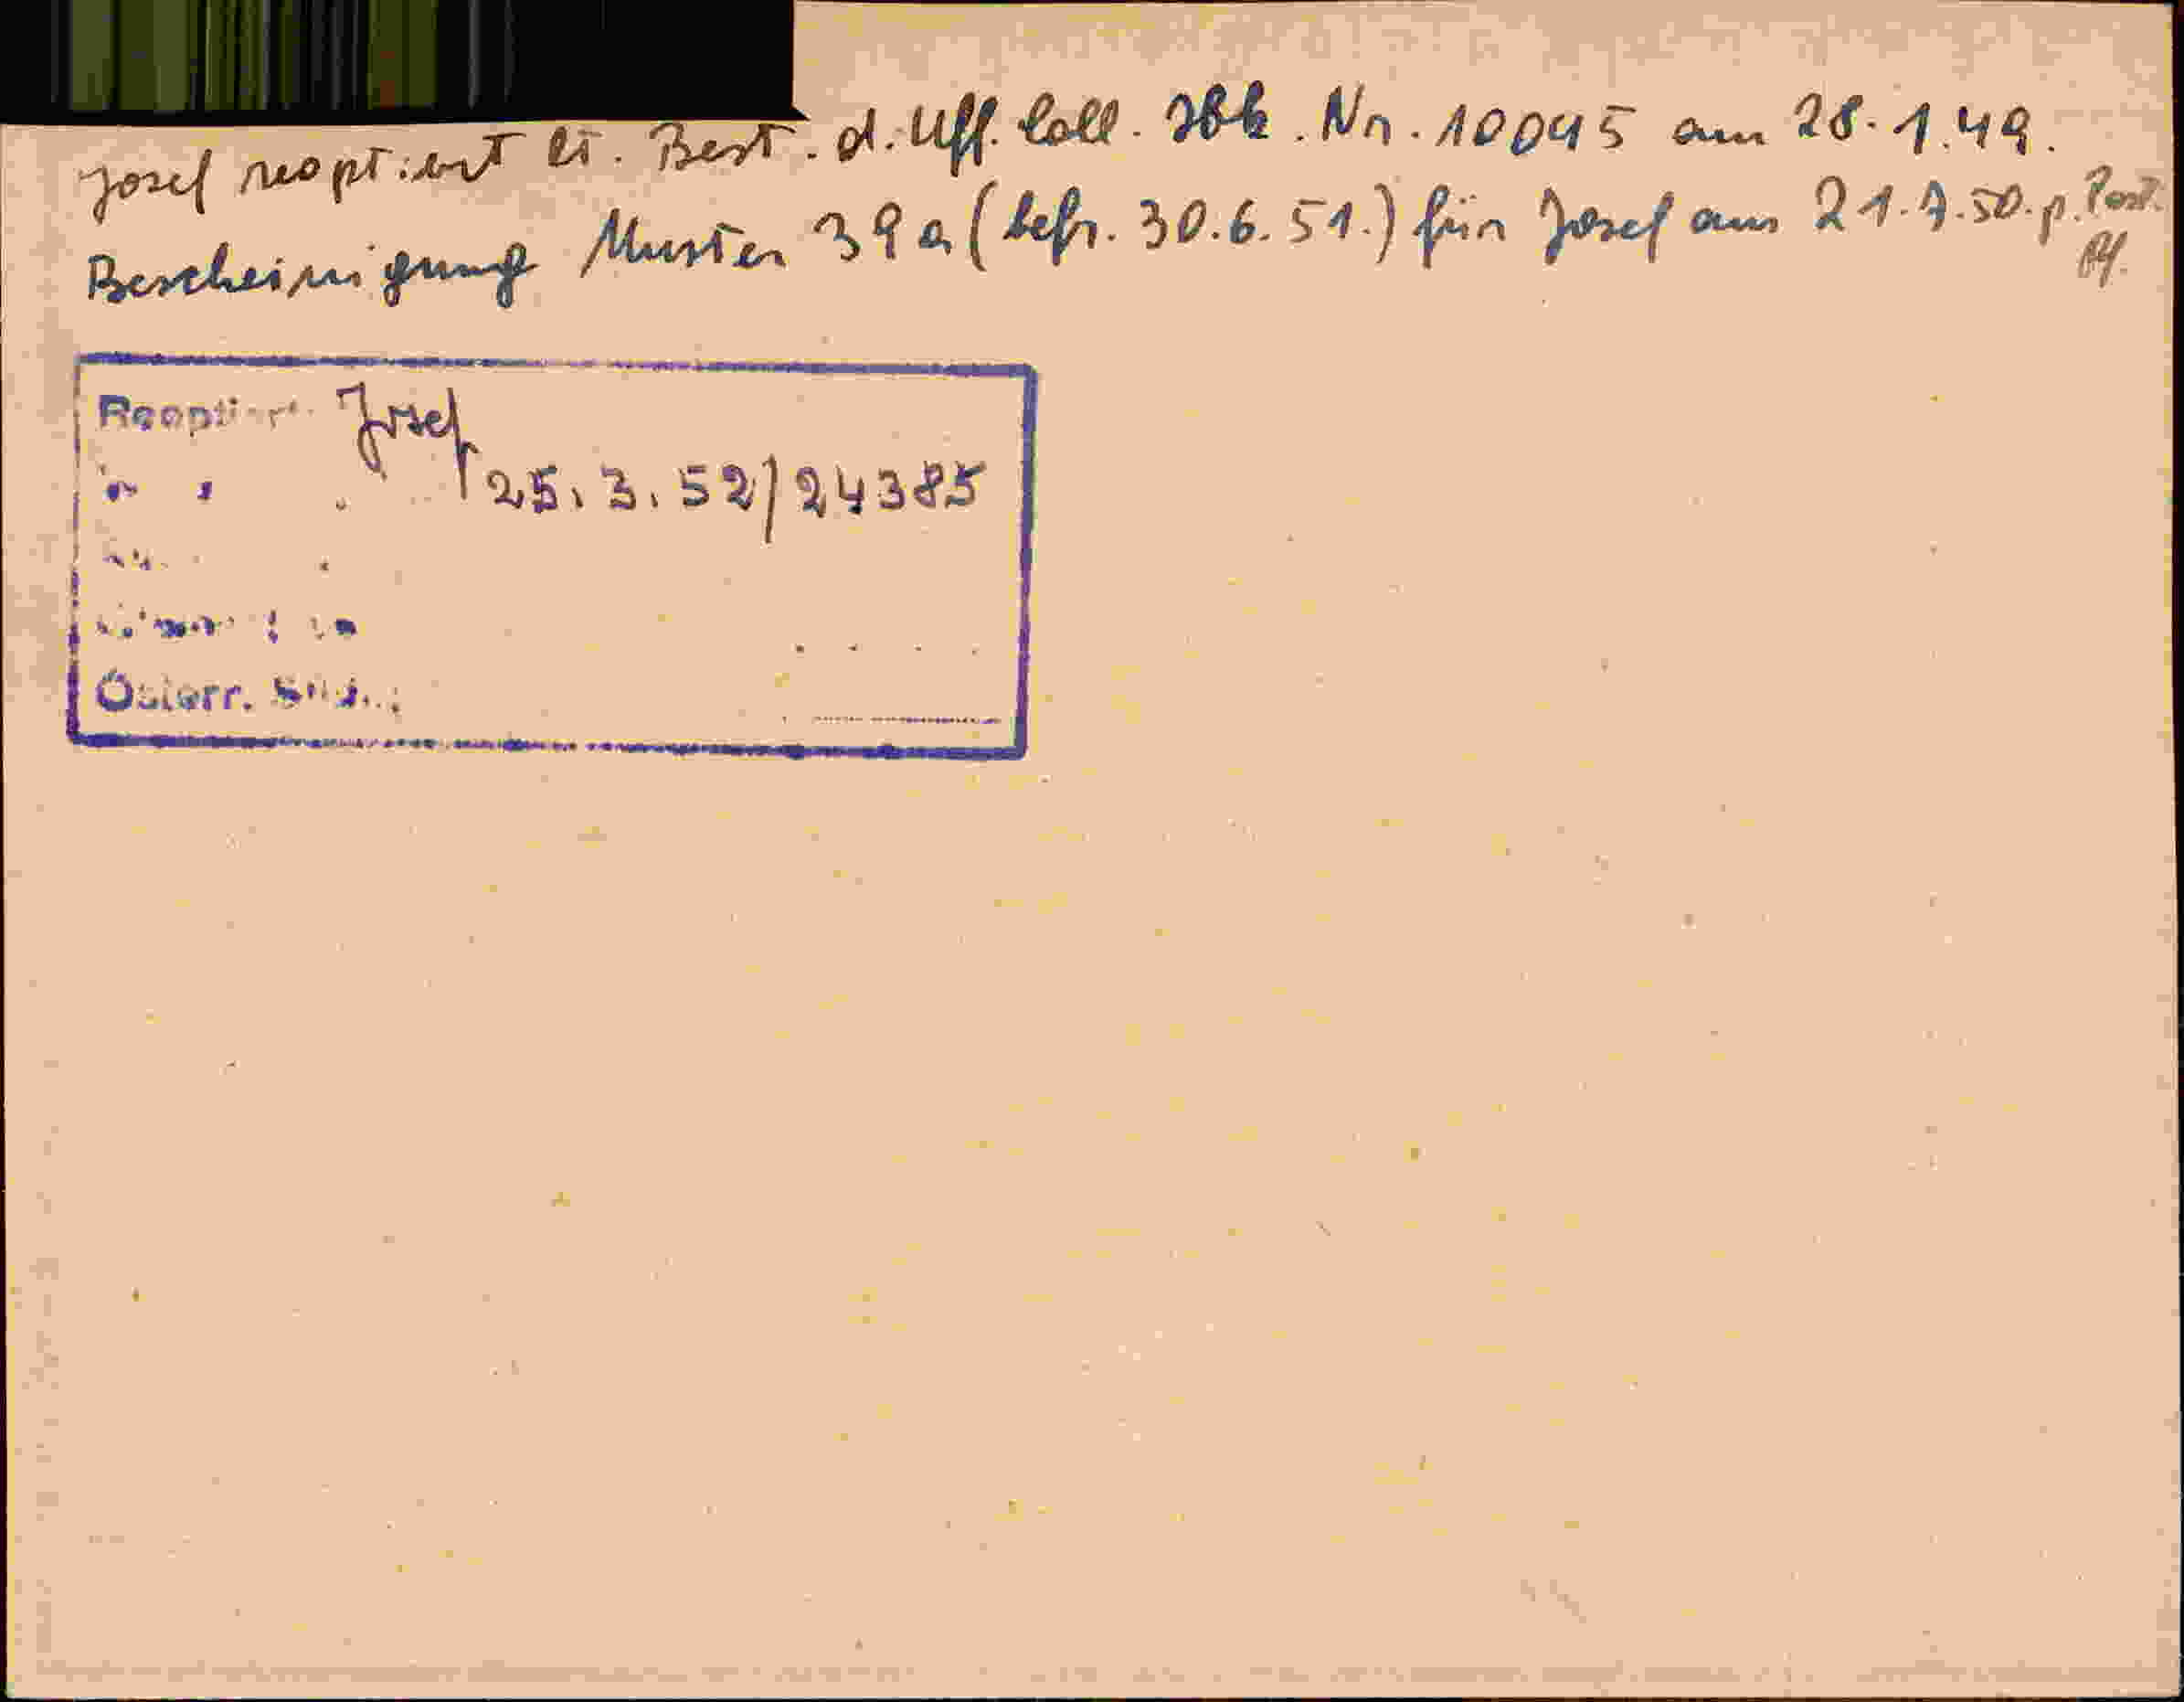 Josef reoptiert lt. Best. d. Uff. Coll. Ibk. Nr. 10045 am 28.1.49.
Bescheinigung Muster 39a (befr. 30.6.51.) für Josef am 21.7.50. p. Post.
Reoptiert Josef
25.3.52/24385
Österr.